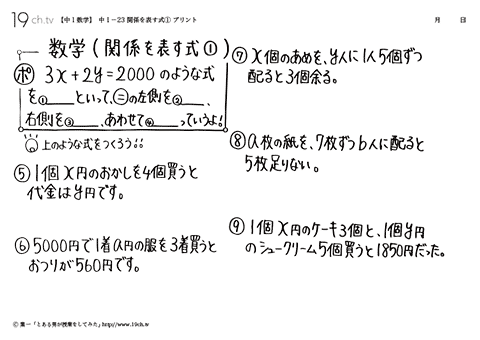 19ch.tv 【中1数学】 中1-23 関係を表す式① プリント 月 日
数学(関係を表す式①)
ポ 3x+2y=2000 のような式
を①____といって、=の左側を②____、
右側を③____、あわせて④____っていうよ!
上のような式をつくろう!!
⑤ 1個x円のおかしを4個買うと
代金はy円です。
⑥ 5000円で1着a円の服を3着買うと
おつりが560円です。
⑦ x個のあめを、y人に1人5個ずつ
配ると3個余る。
⑧ a枚の紙を、7枚ずつb人に配ると
5枚足りない。
⑨ 1個x円のケーキ3個と、1個y円
のシュークリーム5個買うと1850円だった。
© 葉一「とある男が授業をしてみた」http://www.19ch.tv